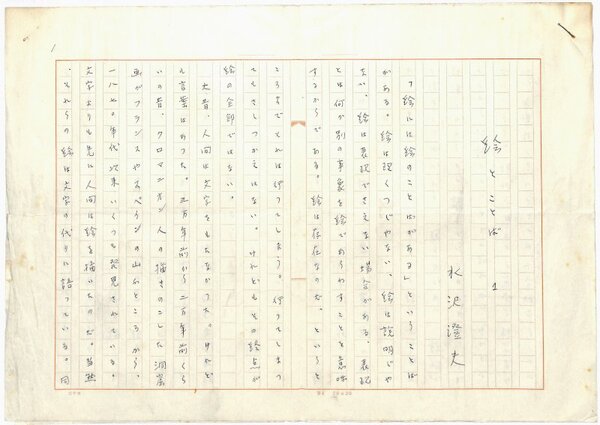 絵とことば 1
水沢澄夫
「絵には絵のことばがある」ということば
がある。絵は理くつじゃない、絵は説明じゃ
ない、絵は表現でさえない場合がある。表現
とは何か別の事象を絵であらわすことを意味
するからである。絵は存在なのだ。というと
ころまでそれは行ってしまう。行ってしまっ
てもさしつかえはない。けれどもその終点が
絵の全部ではない。
大昔、人間は文字をもたなかった。けれど
も言葉はあった。三万年前から二万年前くら
いの昔、クロマニオン人の描きのこした洞窟
画がフランスやスペインの山のところから、
一八七〇年代以来いくつも発見されている。
文字よりも先に人間は絵を描いたのだ。当然
、それらの絵は文字の代りに語っている。同